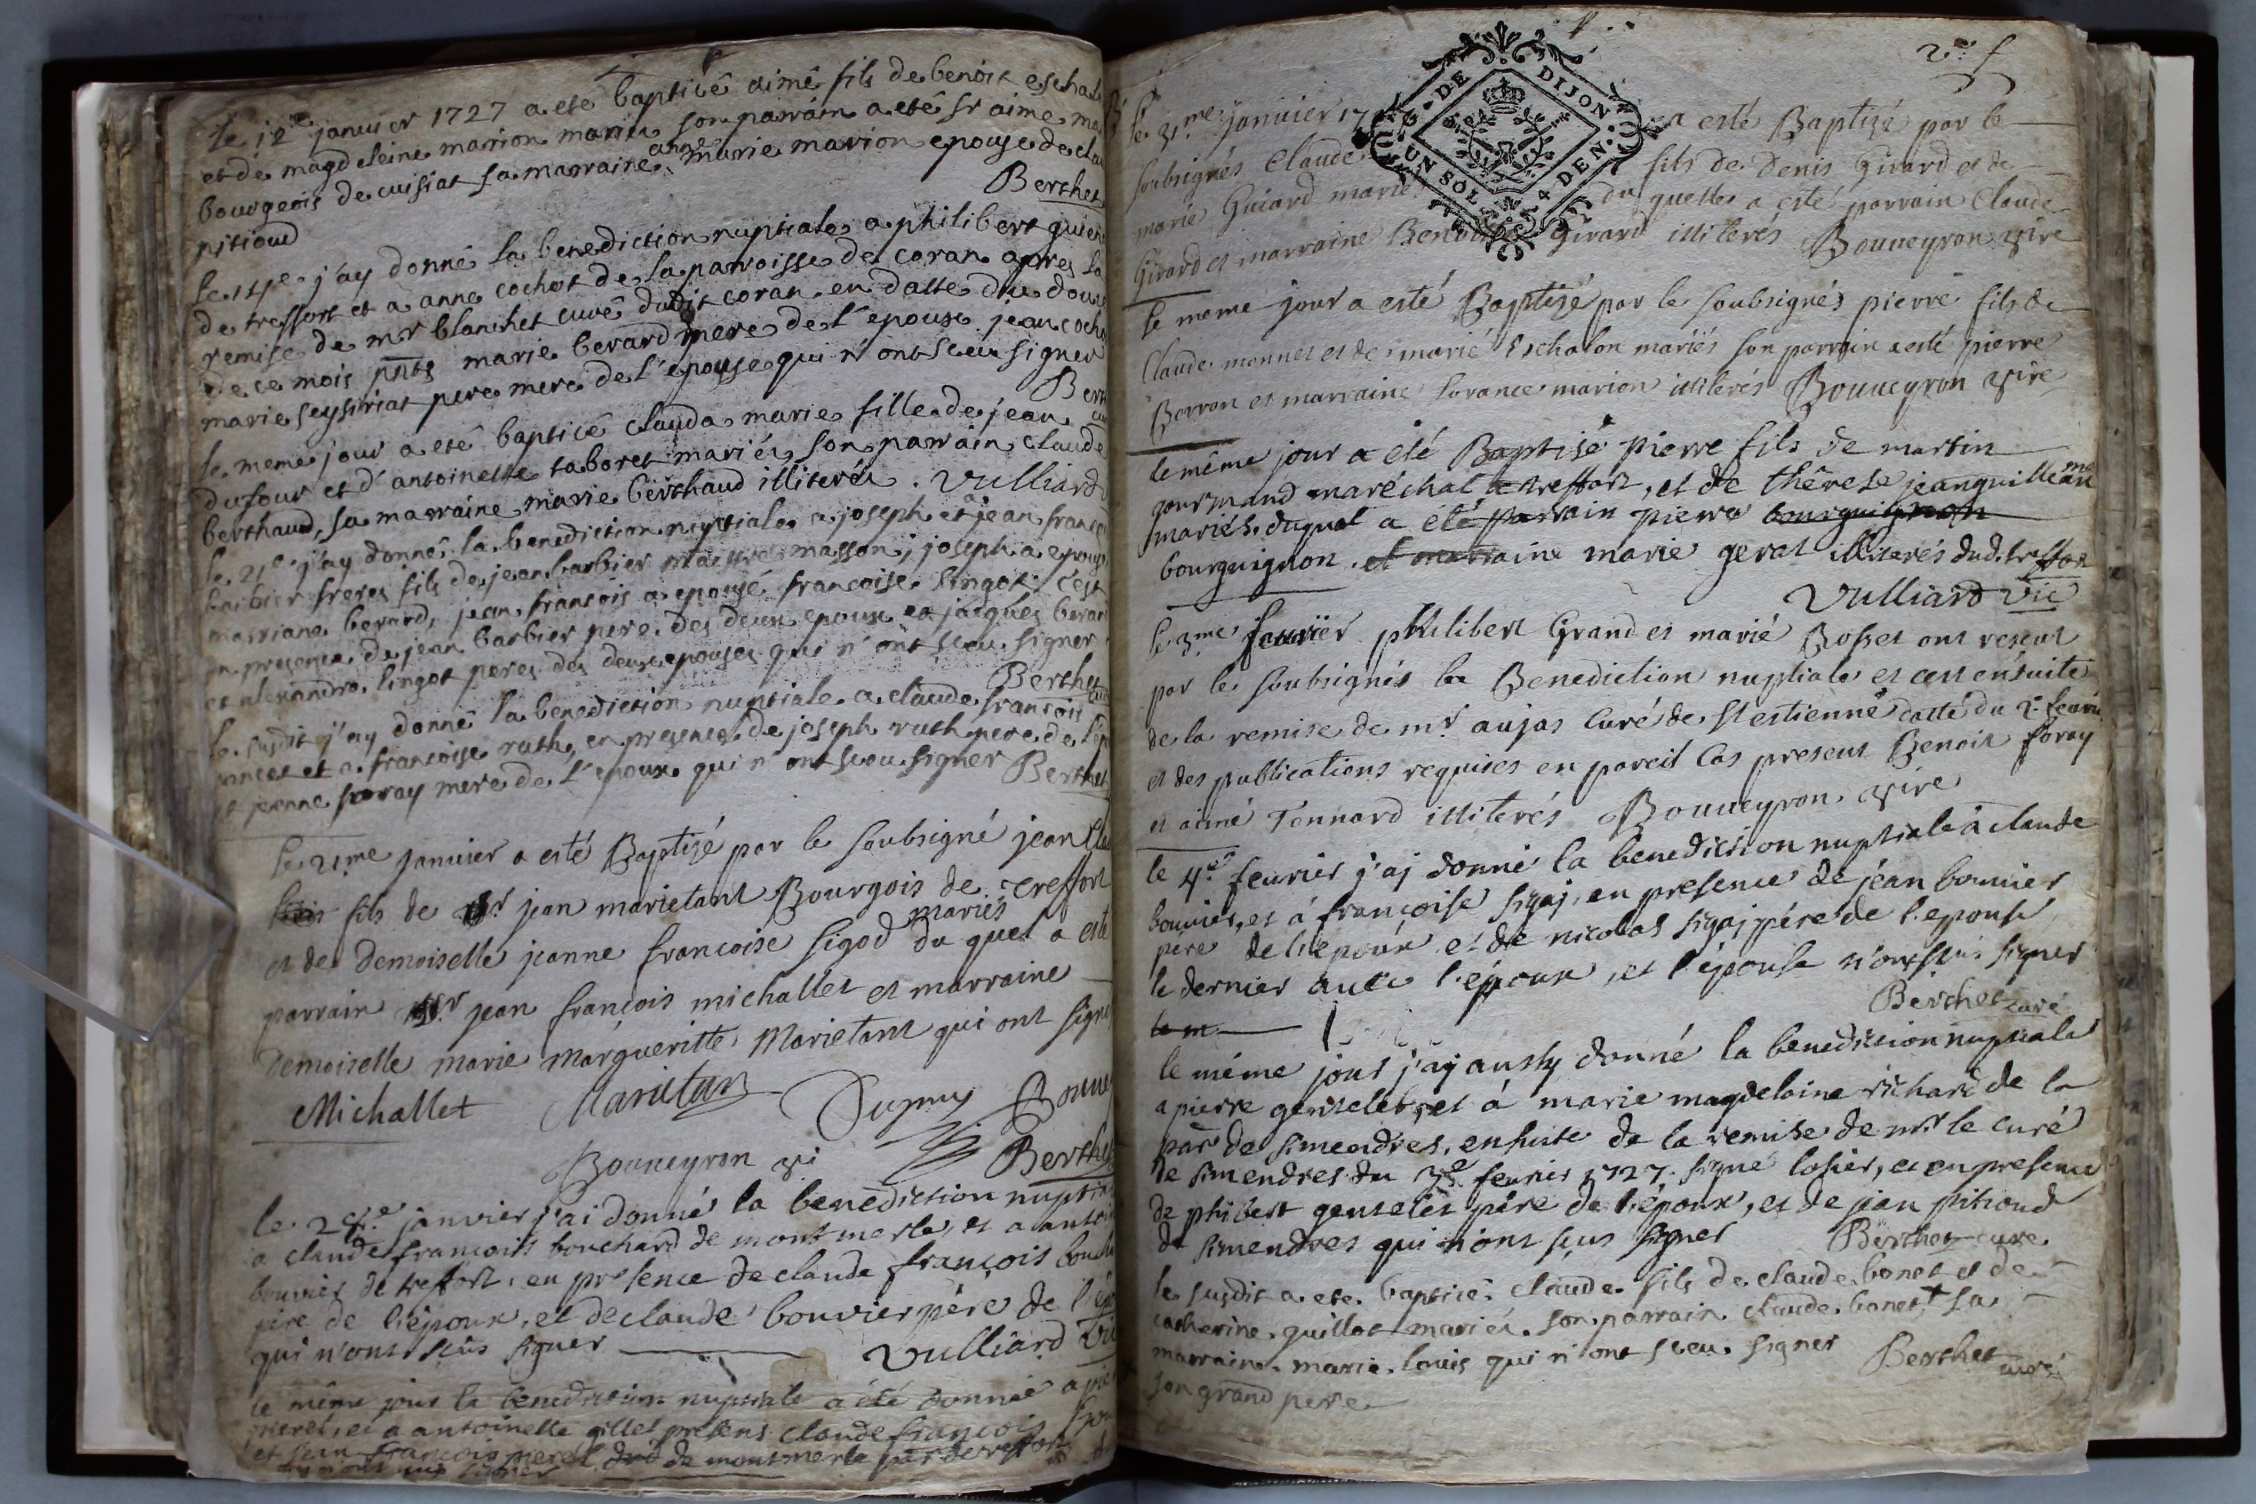 le 12e janvier 1727 a eté baptisé aimé fils de benoit
et de magdeleine marion mariés son parrain a eté sr aimé
bourgeois de cuisiat sa marraine anne marie marion epouse de
pitioud Berthet
j'ay donné la benediction nuptiale a philibert
de treffort et a anne cochet de la parroisse de coran apres la
remise de mr blanchet curé dudit coran en datte du douze
de ce mois pnts marie berard mere de l'epoux jean
marie seysiriat pere mere de l'epouse qui n'ont sceu signer
le meme jour a eté baptisé clauda marie fille de jean
dufour et d'antoinette taboret mariés, son parrain claude
berthaud, sa marraine marie berthaud illiterés. Vulliard
le 21e j'ay donné la benediction nuptiale a joseph et a jean
barbier freres fils de jean barbier maistre masson, joseph a
marriane berard, jean françois a epousé françoise lingot c'est
en presence de jean barbier pere des deux epoux et jacques
et alexandre lingot peres des deux epouses qui n'ont sceu signer
Berthet
le susdit j'ay donné la benediction nuptiale a claude françois
et a francoise ruth, en presence de joseph ruth pere de
et jeanne foray mere de l'epoux qui n'ont sceu signer Berthet
le 21me janvier a esté Baptizé par le soubsigné jean
fils de sr jean marietant Bourgois de treffort
et de demoiselle jeanne françoise sigod mariés du quel a esté
parrain sr jean françois michallet et marraine
demoiselle marie margueritte Marietant qui ont signé
Michallet Marietan Dupuy
Bouueyron vi Berthet
le janvier j'ai donné la benediction
a claude françois bouchard de montmerle, et a
bouvier de treffort, en presence de claude françois
pere de l'epoux, et de claude bouvier père de
qui n'ont sçus signer Vulliard
le même jour la benediction nuptiale a été donnée a
et a antoinette gillet presens claude françois
et jean françois de montmerle par de treffort
signer
2e f
DE DIJON
UN SOL 4 DEN.
le 31me janvier a esté Baptizé par le
soubsignés Claude fils de Denis Girard et de
marie Guiard marié du quelles a esté parrain Claude
Girard et marraine Girard illiterés Bouueyron vire
le meme jour a esté Baptizé par le soubsignés pierre fils de
Claude monnet et de marie Eschalon mariés son parrain a esté pierre
Berron et marraine lorance marion illiterés Bouueyron vire
le même jour a été Baptisé pierre fils de martin
gourmand maréchal a treffort, et de thérese jeanguilleaume
mariés, duquel a été parrain pierre bourguignon
bourguignon, et marraine marie geral illiterés dud. treffort
Vulliard vic
le 3me feurier philibert Grand et marié Bosset ont reseut
par le soubsignés la Benediction nuptiale et cest ensuite
de la remise de mr aujas Curé de st estienne datté du 2e feuri
et des publications requises en pareil Cas present Benoit foray
et aimé Tonnard illiterés Bouueyron vire
le 4e feurier j'aj donné la benediction nuptiale a claude
bouuier, et a françoise sigaj, en presence de jéan bouuier
pere de l'epoux et de nicolas sigaj pére de l'epouse
le dernier auec l'époux, et l'épouse n'ont sçus signer
Berthet curé
le m
le même jour j'aj aussy donné la benediction nuptiale
a pierre genselet, et á marie magdelaine richard de la
par de simendres, ensuite de la remise de mr le curé
de simendres du 3e feurier 1727. signé losier, et en presence
de phibert genselet pére de l'époux, et de jean pitioud
de simendres qui n'ont sçus signer Berthet curé
le susdit a eté baptisé claude fils de claude bonet et de
catherine guillot mariés. son parrain claude bonet + sa
marraine marie louis qui n'ont sceu signer Berthet curé
son grand pere